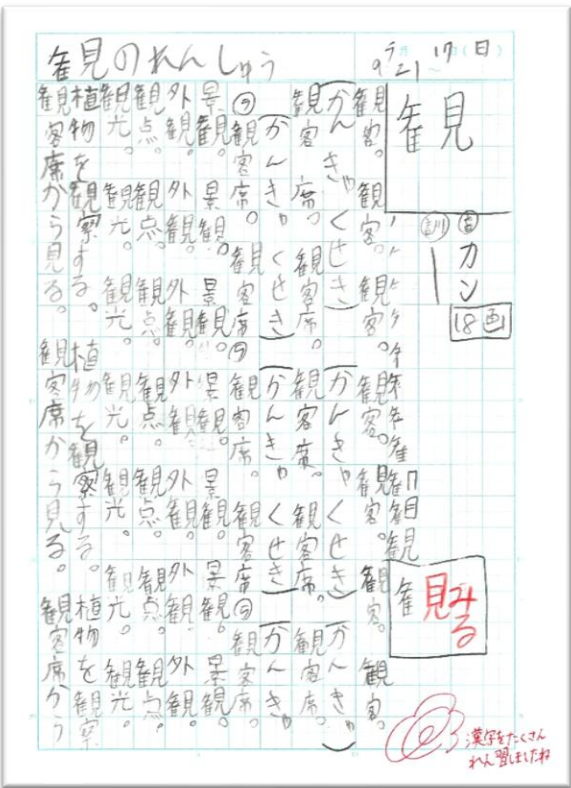 観のれんしゅう
観
音 カン
訓 ー
18画
観 みる
観客。観客。観客。観客。観客。観客。観客。
(かんきゃくせき)(かんきゃくせき)(かんきゃ)
観客席。観客席。観客席。観客席。観客席。
(かんきゃくせき)(かんきゃくせき)(かんきゃ
観客席。観客席 観客席。観客席 観客席。
景観。景観。景観。景観。景観。景観。景観。
外観。外観。外観。外観。外観。外観。外観。
観点。観点。観点。観点。観点。観点。観点。
観光。観光。観光。観光。観光。観光。観光。
植物を観察する。植物を観察する。植物を観察
観客席から見る。観客席から見る。観客席から
漢字をたくさん
れん習しましたね